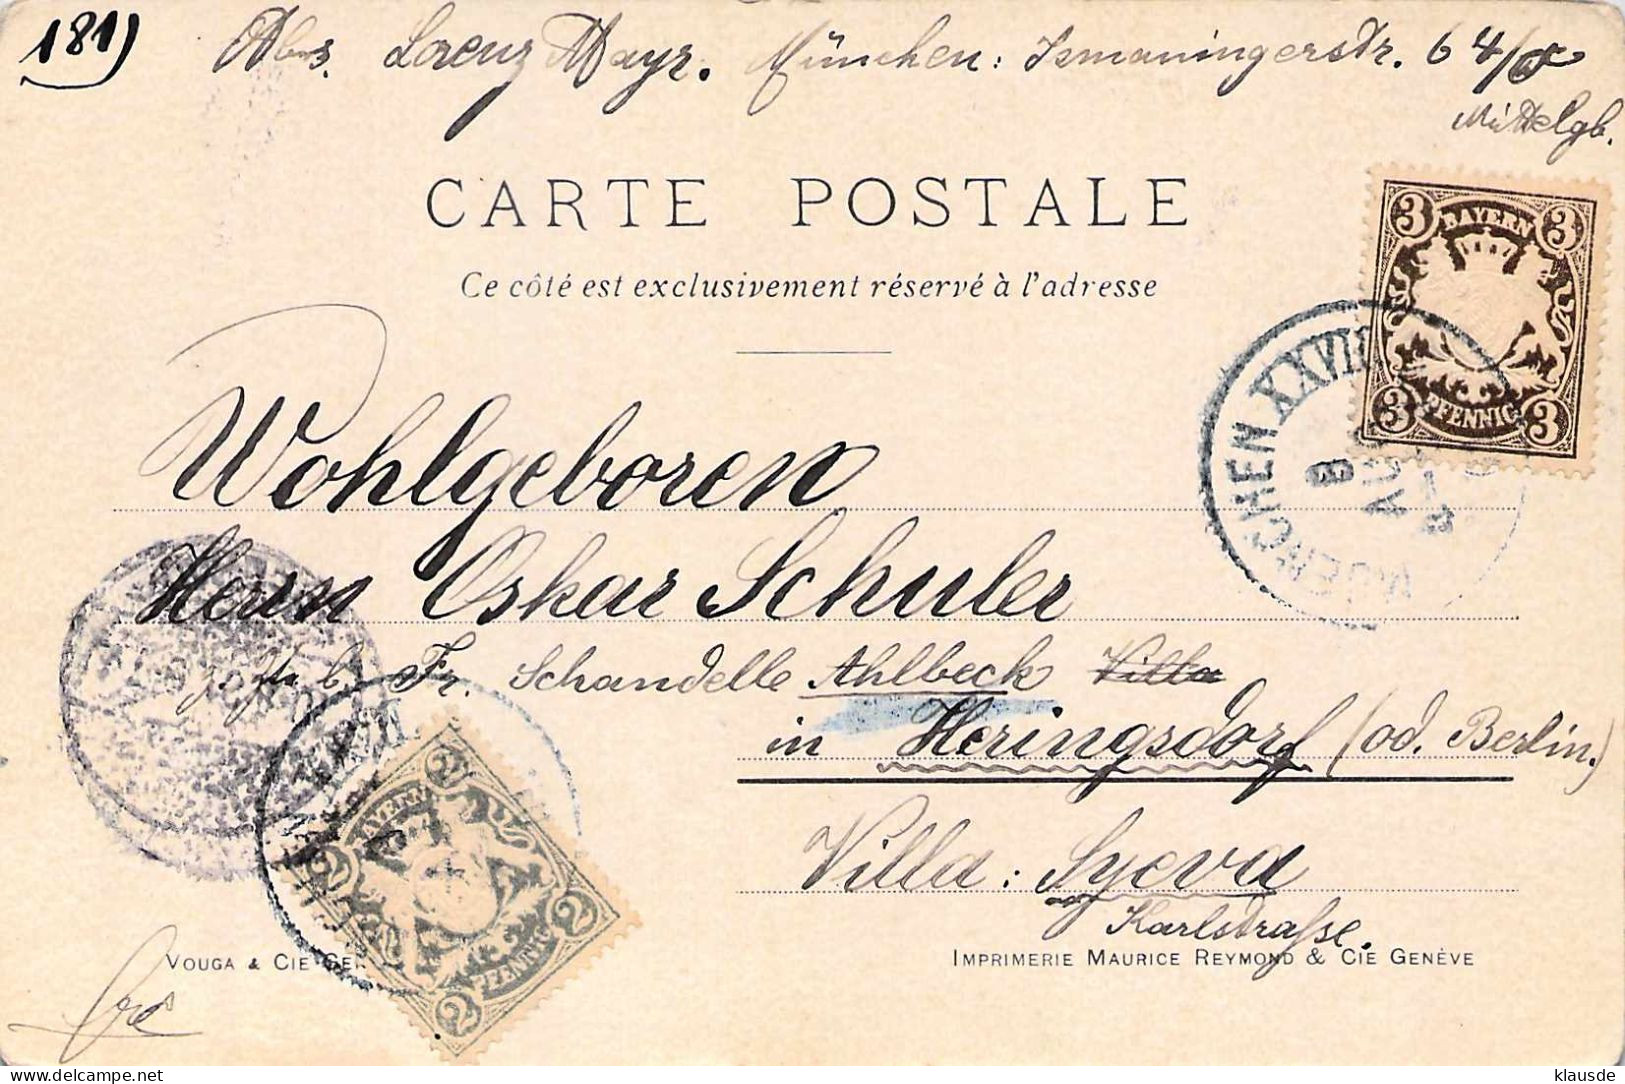 181)
Abs. Lorenz Mayr. München: Ismaningerstr. 64/0
Mittelgb.
CARTE POSTALE
Ce côté est exclusivement réservé à l'adresse
3 BAYERN 3
3 PFENNIG 3
MUENCHEN XXVII
8 AUG
Wohlgeboren
Herrn Oskar Schuler
Fr. Schandelle Ahlbeck Villa
in Heringsdorf (od. Berlin.)
Villa: Sycva
Karlstraße.
2 BAYERN 2
2 PFENNIG 2
VOUGA & CIE GE
IMPRIMERIE MAURICE REYMOND & CIE GENÈVE
delcampe.net
klausde